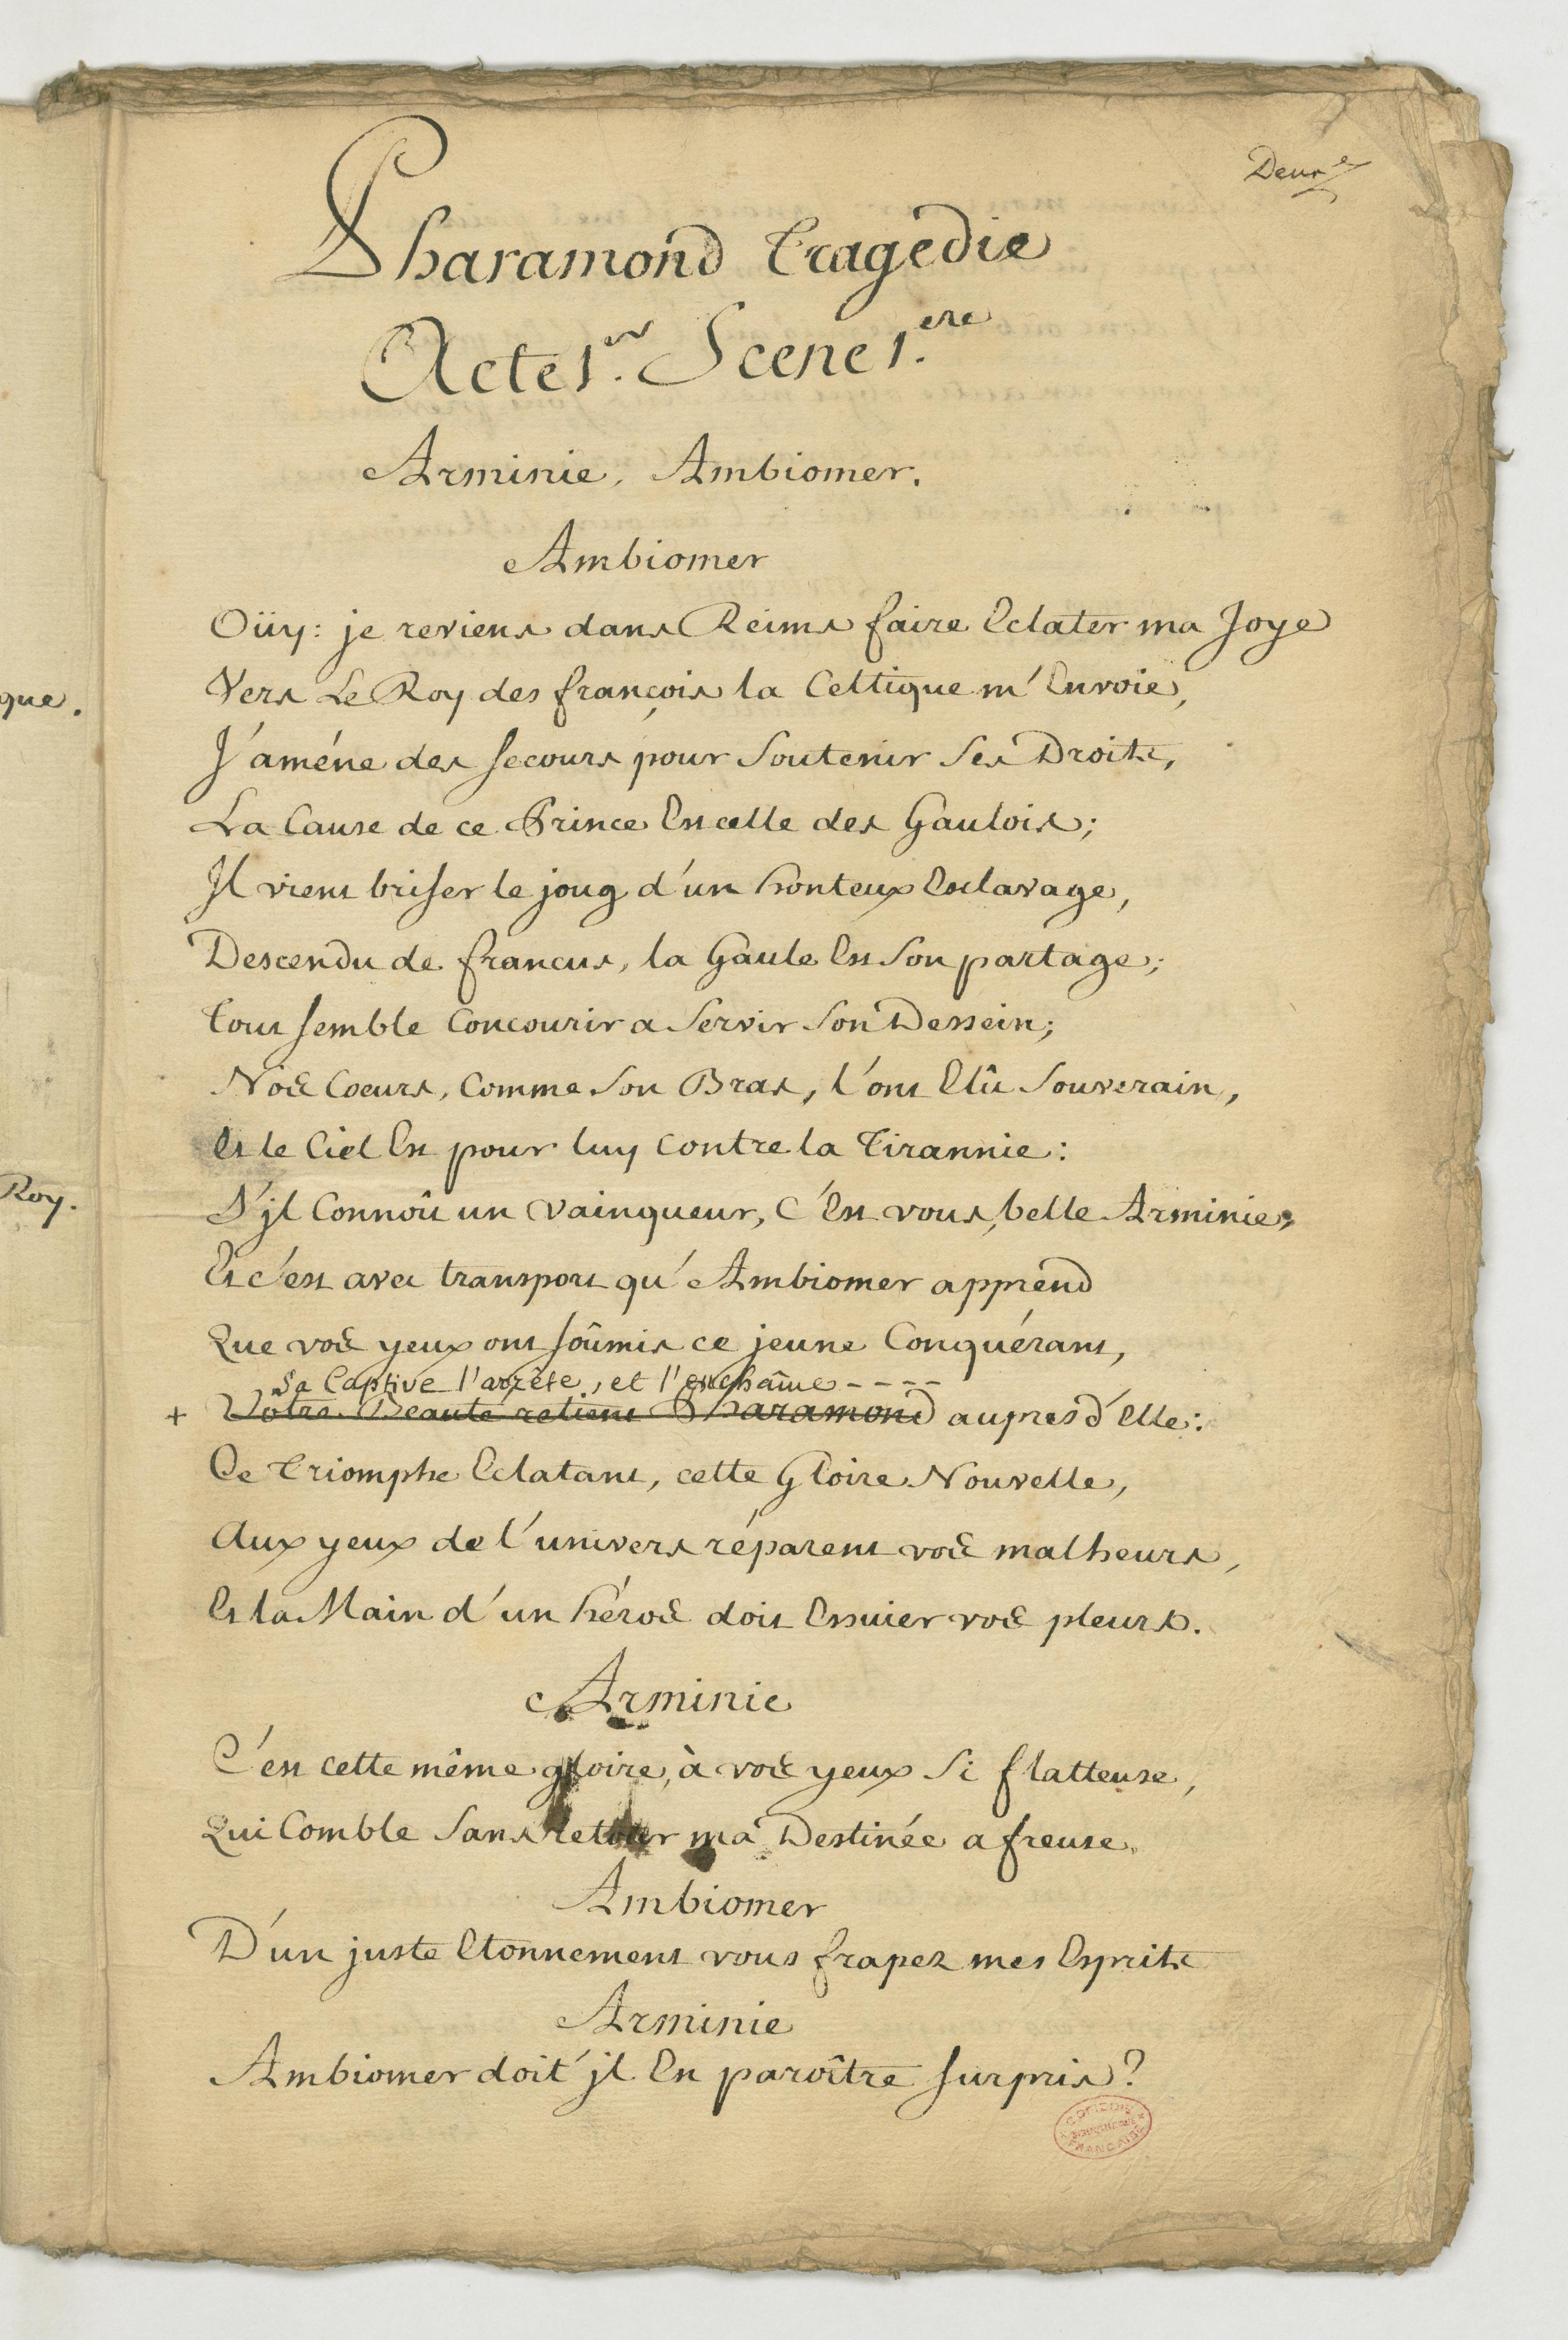 Deux.e
Pharamond Tragedie
Acte 1er. Scene 1.ere
Arminie, Ambiomer.
Ambiomer
Oüy: je reviens dans Reims faire Eclater ma Joye
Vers Le Roy des françois la Celtique m'Envoie,
J'améne des secours pour soutenir ses Droits,
La Cause de ce Prince Est celle des Gaulois;
Il vient briser le joug d'un honteux Esclavage,
que.
Descendu de francus, la Gaule Est son partage;
tout semble Concourir a servir son Dessein;
Nos Coeurs, Comme son Bras, l'ont Elû souverain,
Et le Ciel Est pour luy contre la Tirannie:
S'jl Connoît un vainqueur, C'Est vous, belle Arminie,
Roy.
Et c'est avec transport qu'Ambiomer apprend
Que vos yeux ont soûmis ce jeune Conquérant,
Sa Captive l'arrête, et l'enchaîne - - - -
+ Vôtre Beauté retient Pharamond aupres d'Elle:
Ce Triomphe Eclatant, cette Gloire Nouvelle,
Aux yeux de l'univers réparent vos malheurs,
Et la Main d'un héros doit Essuier vos pleurs.
Arminie
C'est cette même gloire, à vos yeux si flatteuse,
Qui Comble sans retour ma Destinée afreuse.
Ambiomer
D'un juste Etonnement vous frapez mes Esprits
Arminie
Ambiomer doit'jl En paroître surpris?
COMEDIE
FRANCAISE